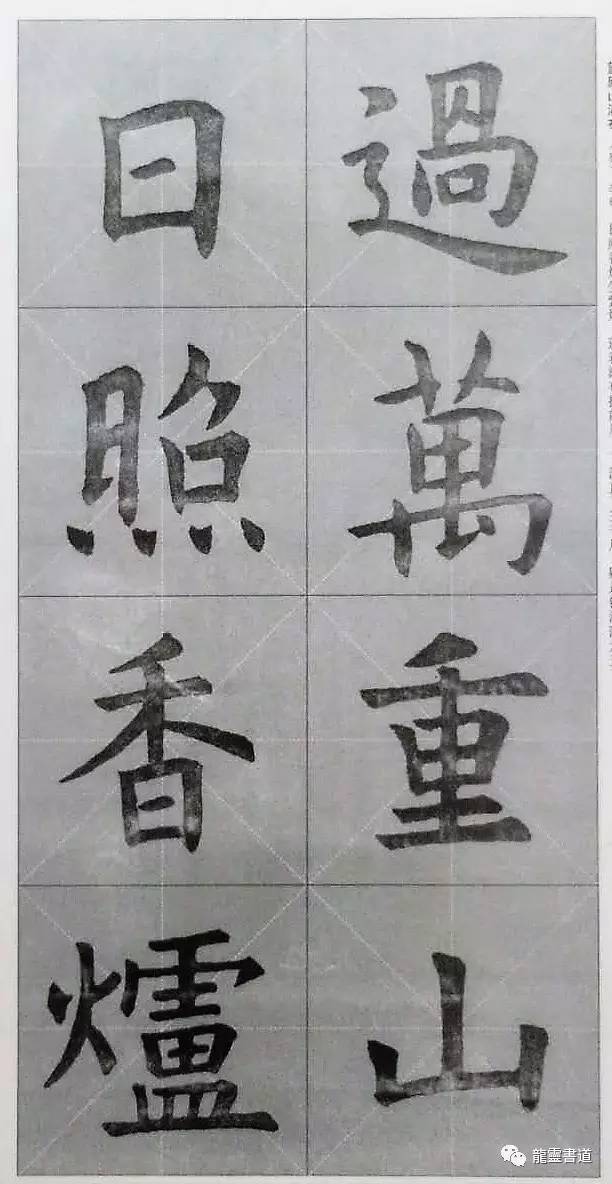 過萬重山
日照香爐
龍靈書道